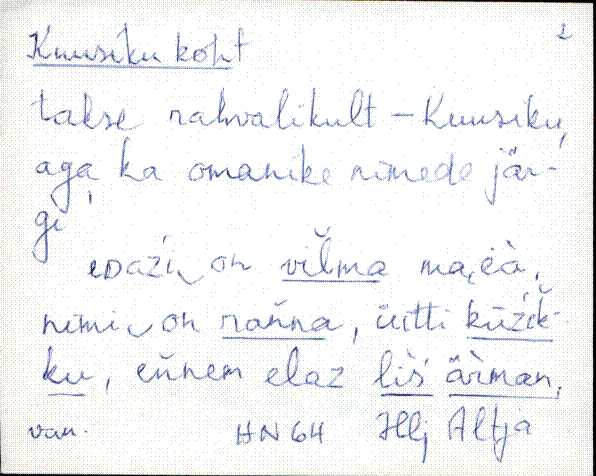 2
Kuusiku koht
takse rahvalikult – Kuusiku,
aga ka omanike nimede jär-
gi
on vilma
nimi on ranna, üitti kūžik-
ku, eńnem elaz liš ärman,
van. HN 64 Hlj Altja